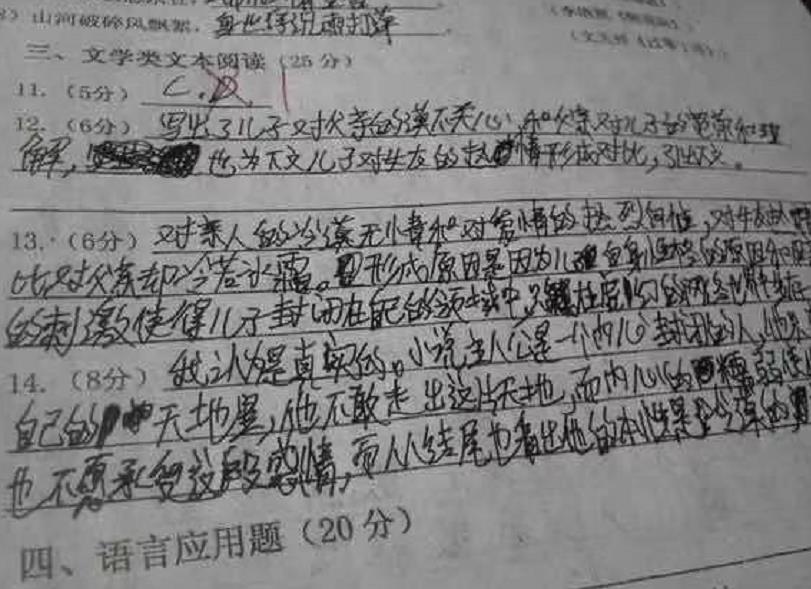 山河破碎风飘絮,身世浮沉雨打萍。
三、文学类文本阅读(25分)
11.(5分) C.D
12.(6分) 写出了儿子对父亲的漠不关心,和父亲对儿子的宽容和理
解,也为下文儿子对女友的热情形成对比,引出下文。
13.(6分) 对亲人的冷漠无情和对爱情的热烈向往,对女友
比对父亲却冷若冰霜。形成原因是因为儿子自身性格的原因和
的刺激使得儿子封闭在自己的领域中,只
14.(8分) 我认为是真实的。小说主人公是一个内心封闭的人,他
自己的天地里,他不敢走出这片天地,而内心的懦弱使
他不愿承受这段感情,而从结尾也看出他的本性是冷漠的
四、语言应用题(20分)